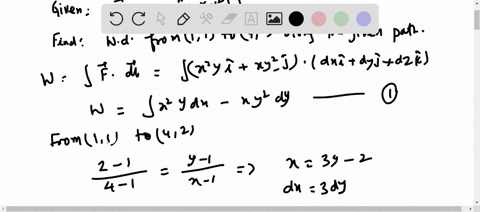 Given:
Find: W.d. from (1,1) to given path.
W = ∫ F⃗ . dr⃗ = ∫(x²y î + xy² ĵ) . (dxî + dyĵ + dzk̂)
W = ∫ x² y dx - xy² dy ——— ①
From (1,1) to (4,2)
2-1 / 4-1 = y-1 / x-1 => x = 3y - 2
dx = 3dy